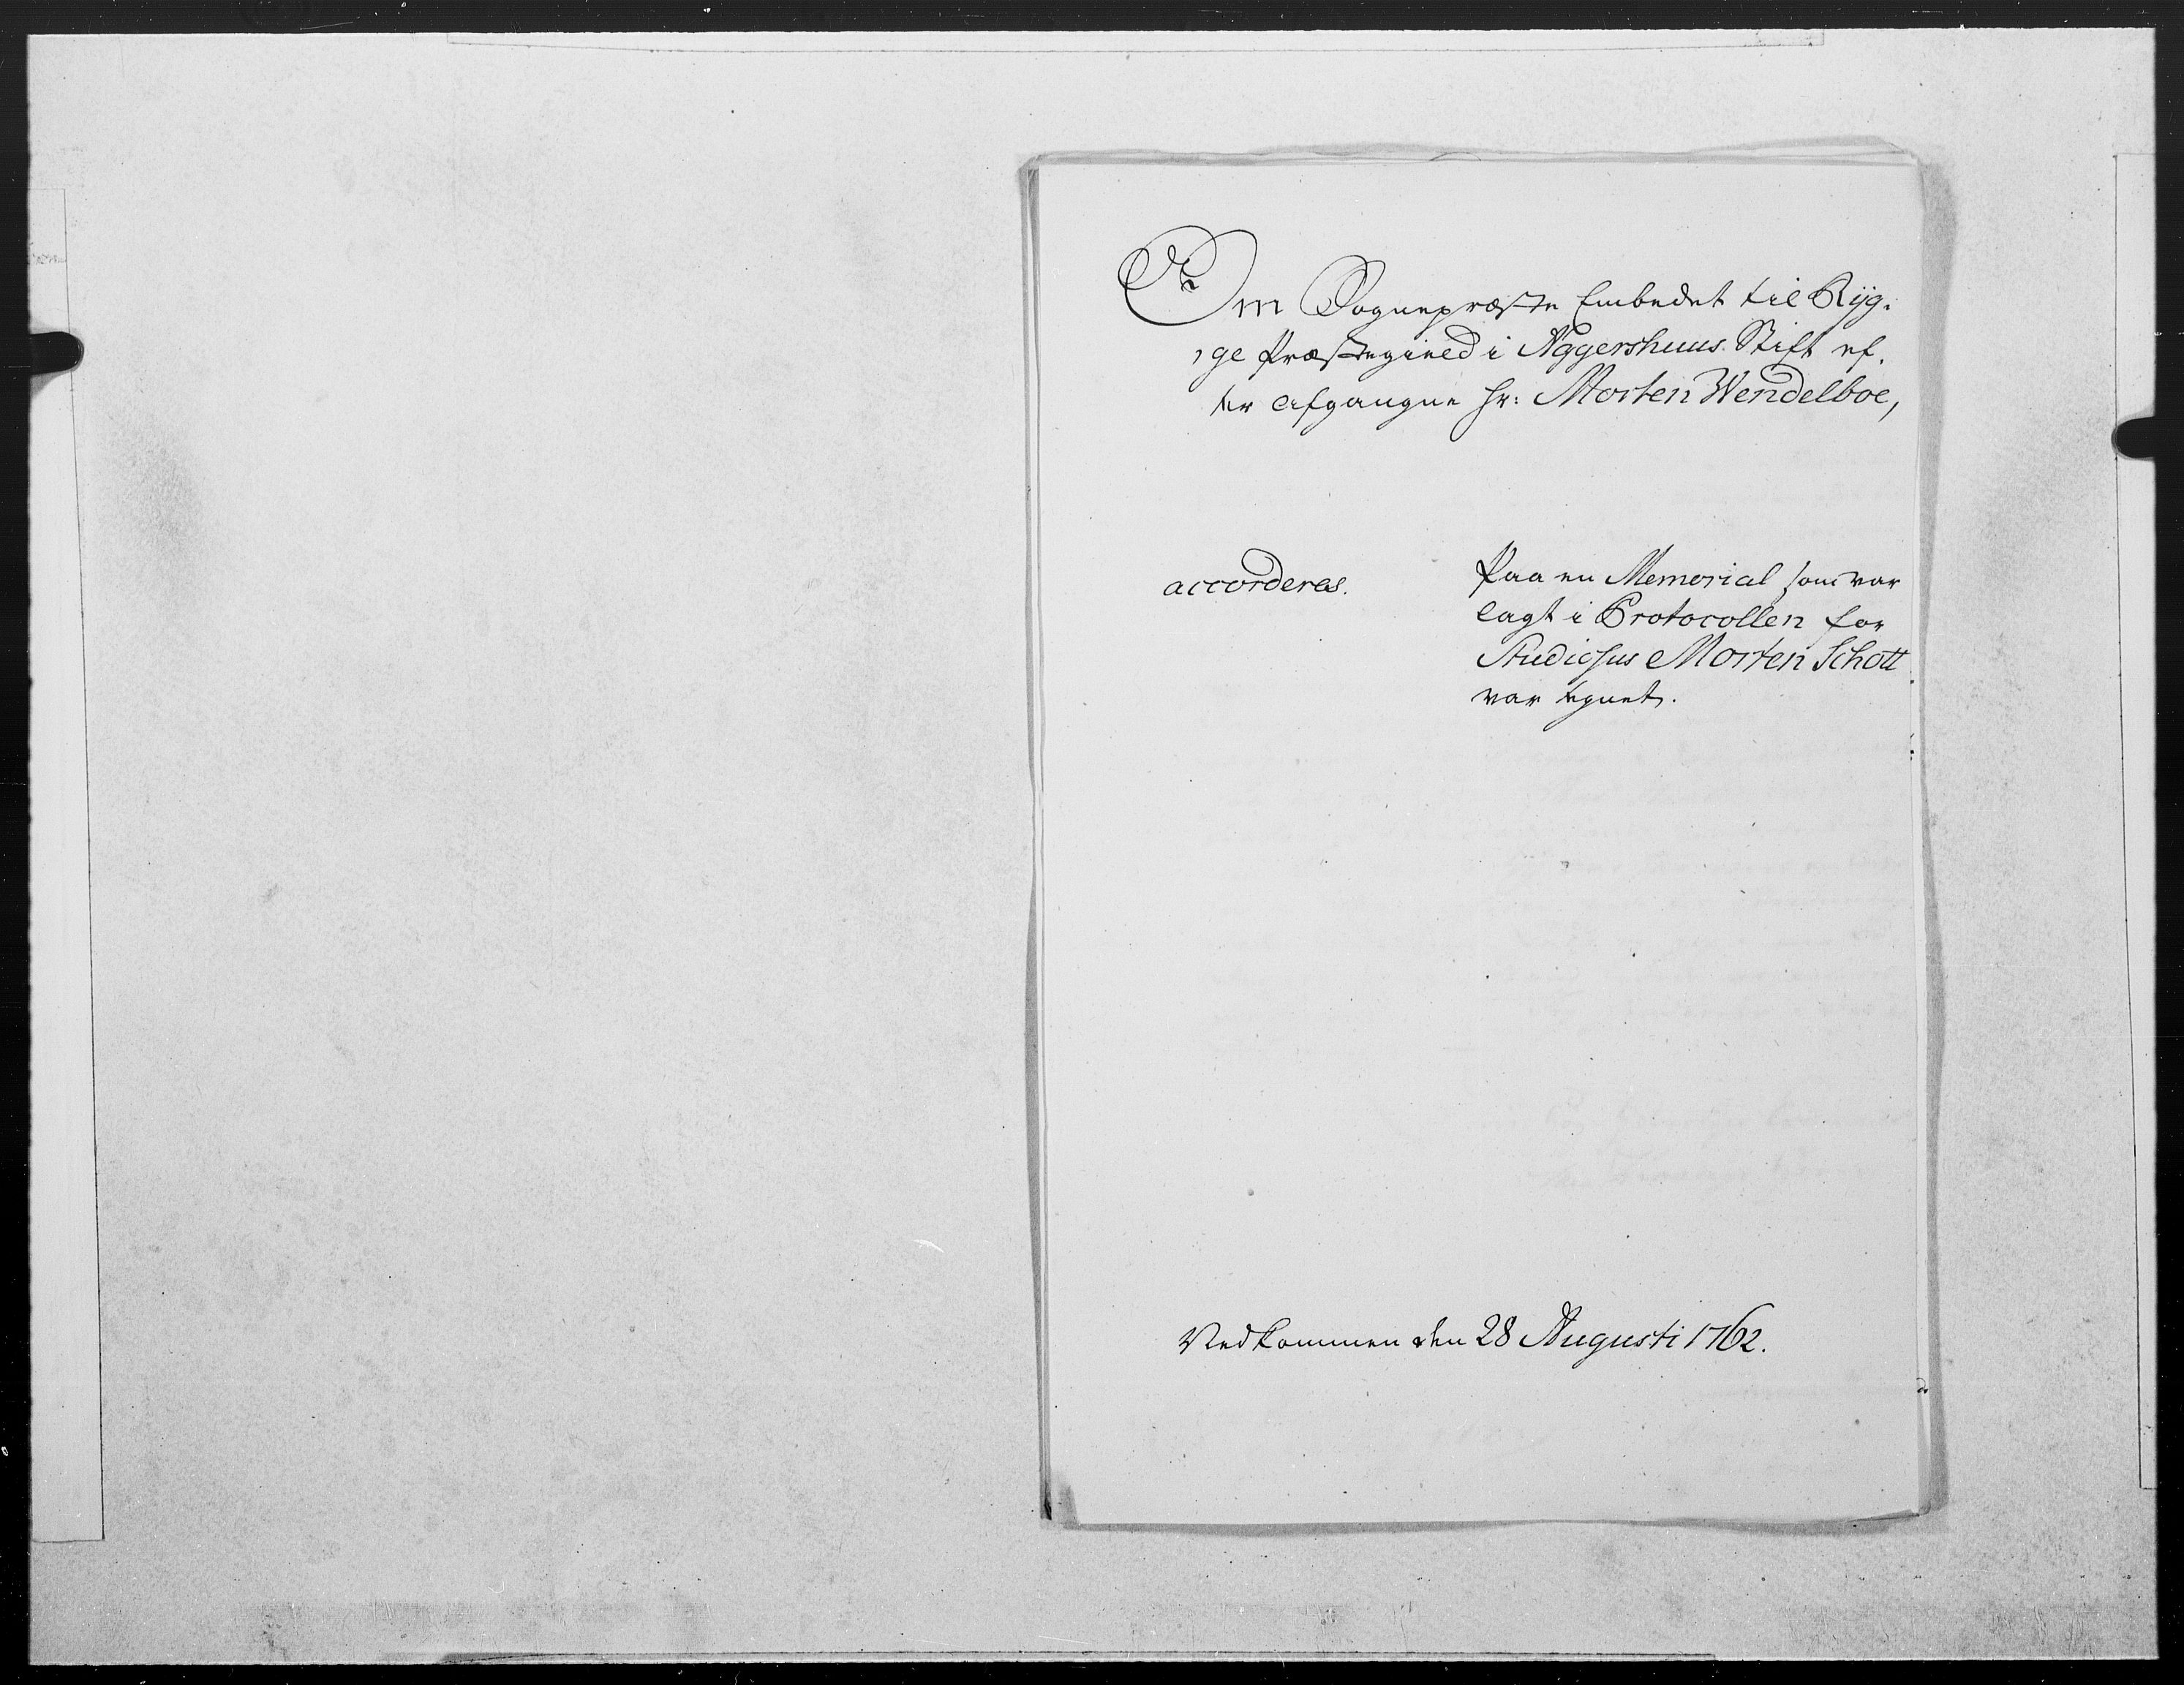 Om Sognepræste Embedet til Ryg-
ge Præstegield i Aggershuus Stift ef-
ter Afgangne Hr: Morten Wendelboe,
accorderes.
Paa en Memorial som var
lagt i Protocollen for
Studiosus Morten Schott
var tegnet.
Nedkommen den 28 Augusti 1762.